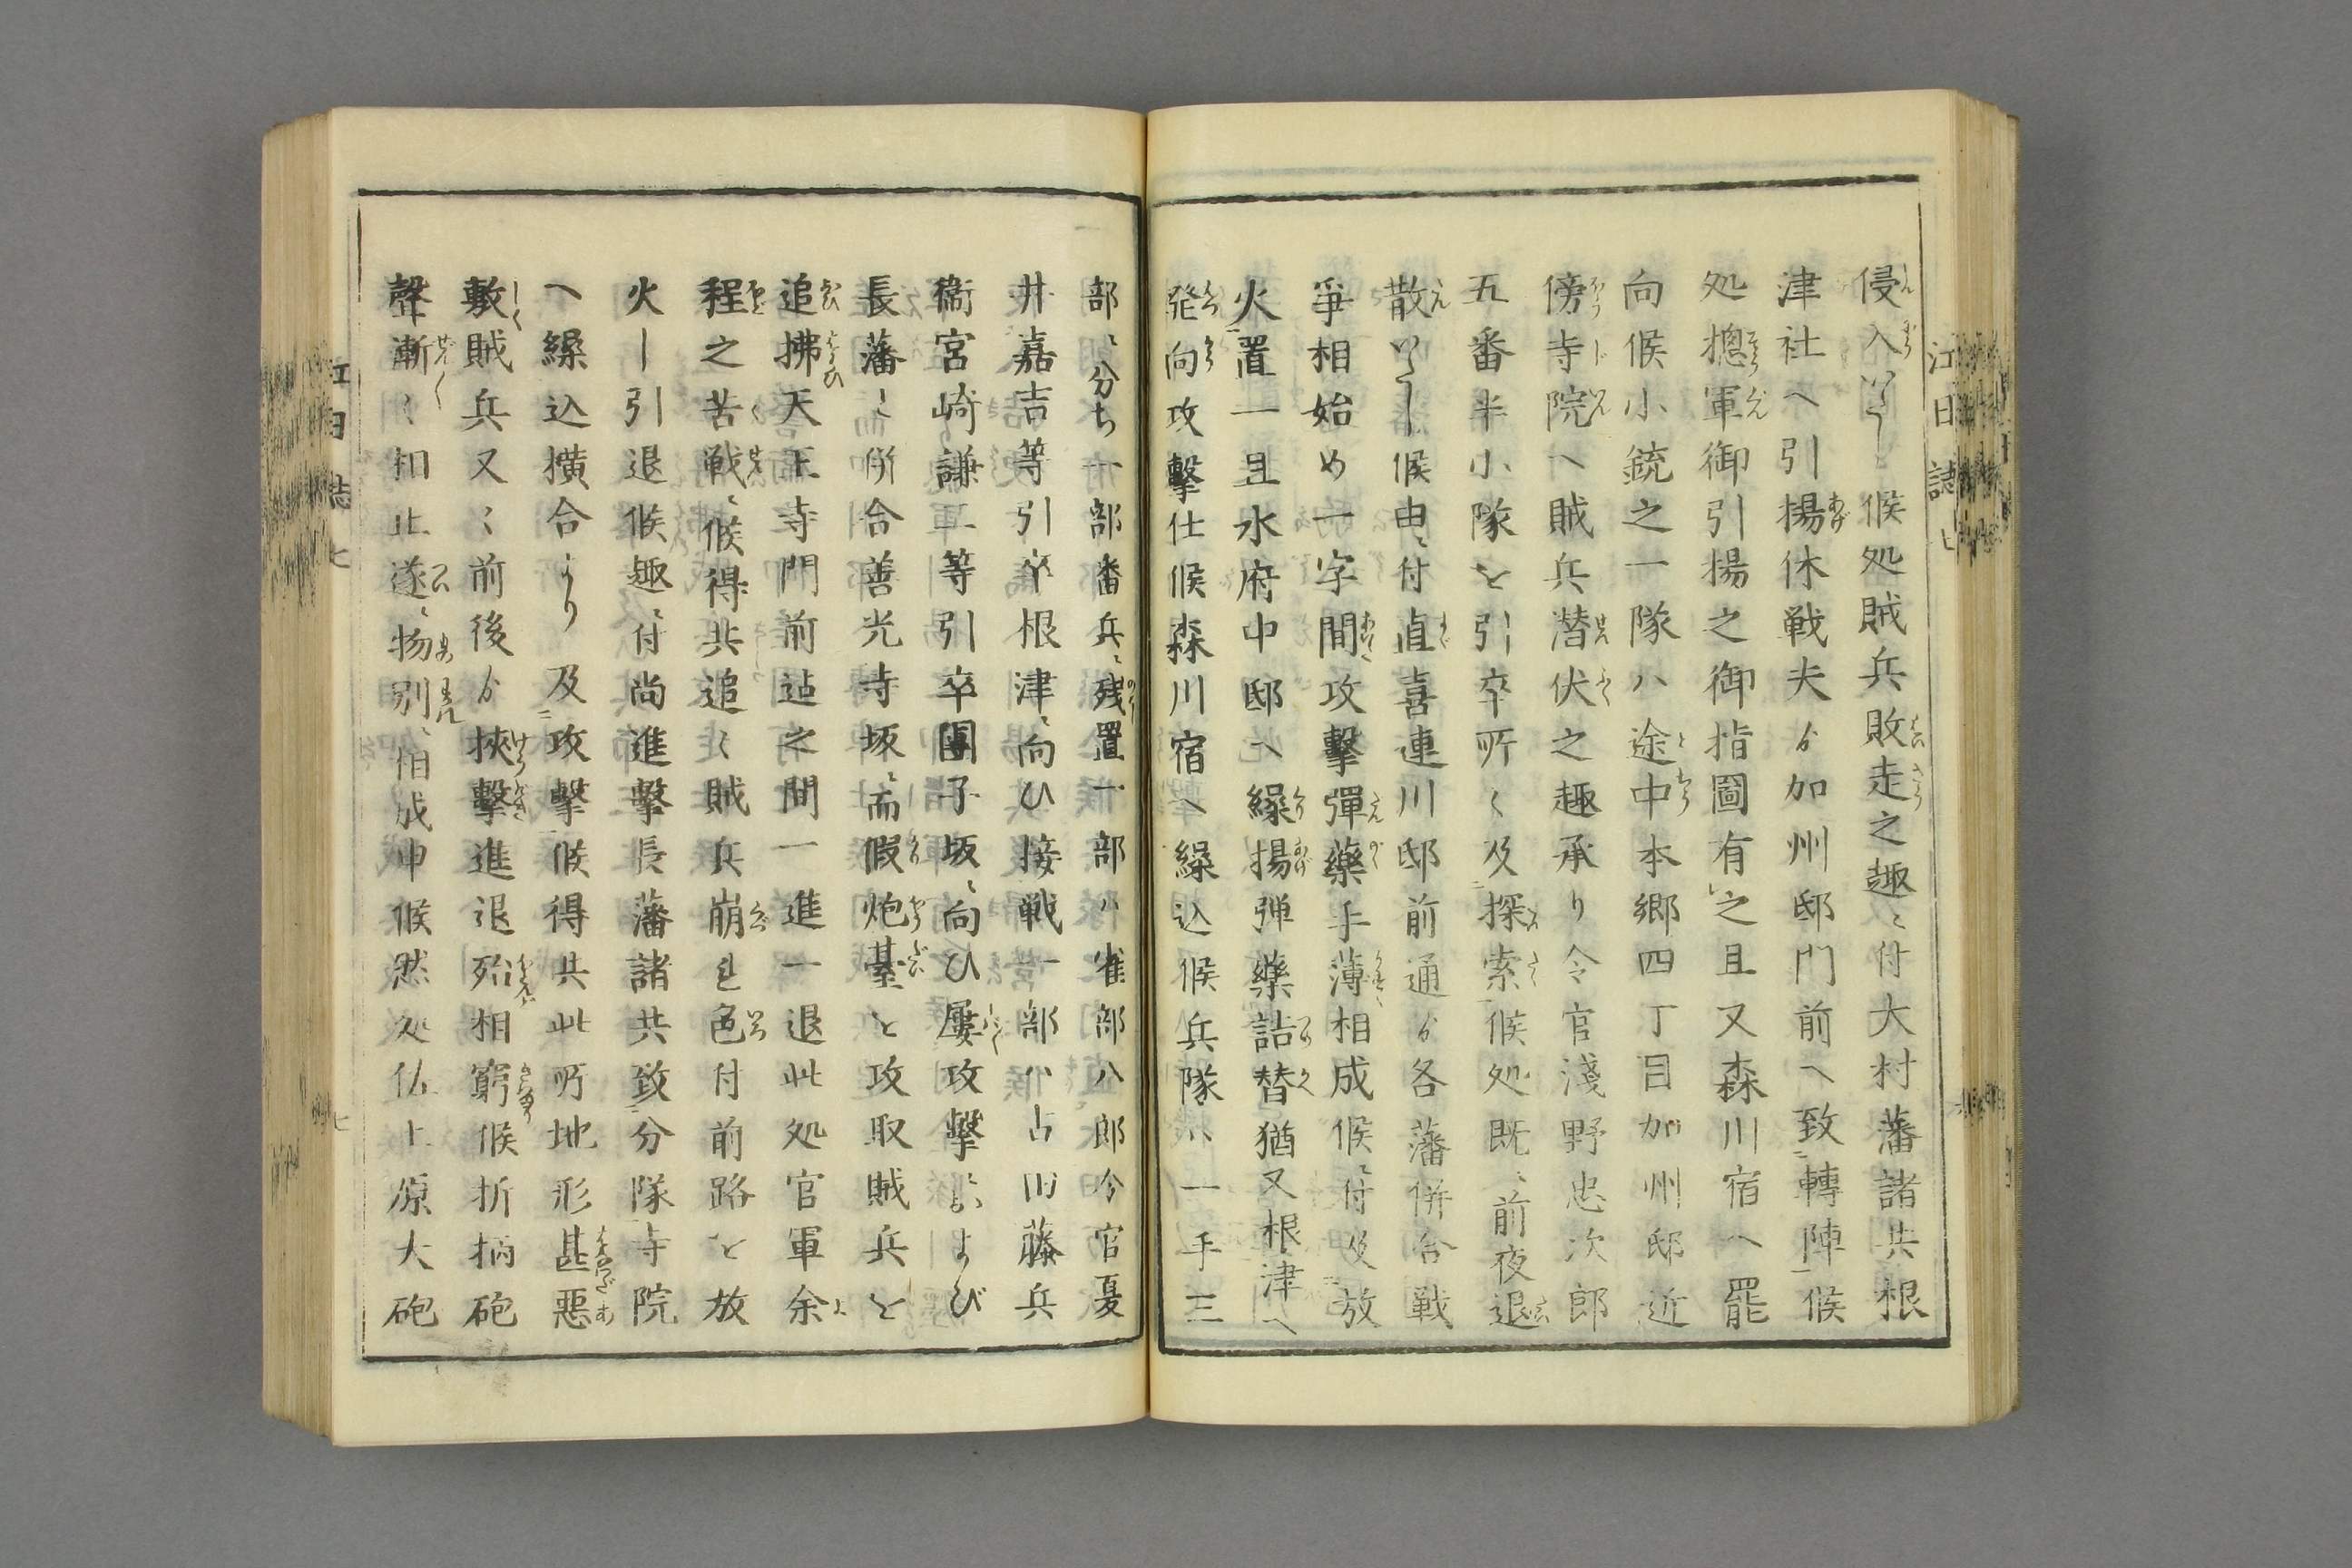 侵入いたし候処賊兵敗走之趣ニ付大村藩諸共根
津社ヘ引揚休戦夫ゟ加州邸門前ヘ致轉陣候
処摠軍御引揚之御指圖有之且又森川宿ヘ罷
向候小銃之一隊ハ途中本郷四丁目加州邸近
傍寺院ヘ賊兵潜伏之趣承り令官淺野忠次郎
五番半小隊を引卒所〻及探索候処既ニ前夜退
散いたし候由ニ付直喜連川邸前通ゟ各藩併合戦
爭相始め一字間攻擊彈藥手薄相成候ニ付及放
火置一旦水府中邸ヘ繰揚彈藥詰替猶又根津ヘ
発向攻擊仕候森川宿ヘ繰込候兵隊ハ一手三
部ニ分ち一部番兵ニ残置一部ハ雀部八郎令官戛
井嘉吉等引卒根津ニ向ひ接戦一部ハ占田藤兵
衞宮崎謙二等引卒團子坂ニ向ひ屢攻擊および
長藩ニ併合善光寺坂ニ而假炮臺を攻取賊兵を
追拂天王寺門前迠之間一進一退此処官軍余
程之苦戦ニ候得共追〻賊兵崩れ色付前路を放
火し引退候趣ニ付尚進擊長藩諸共致分隊寺院
ヘ繰込横合より及攻擊候得共此所地形甚惡
敷賊兵又〻前後ゟ挾擊進退殆相窮候折柄砲
聲漸〻相止遂ニ物別ニ相成申候然処仏上原大砲
江日誌 七
江日誌 七
七